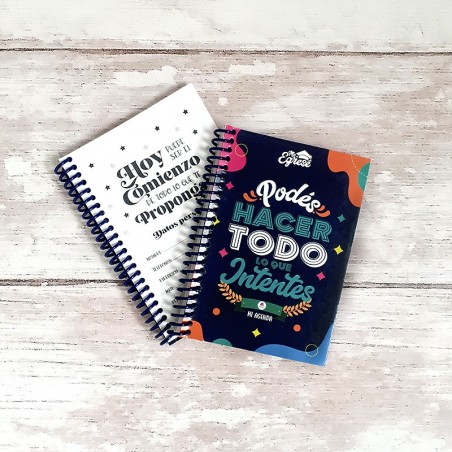 Hoy
PUEDE
SER EL
Comienzo
DE TODO LO QUE TE
Datos
NOMBRE
Me
Egresé
Podés
HACER
TODO
LO QUE
Intentes
MI AGENDA